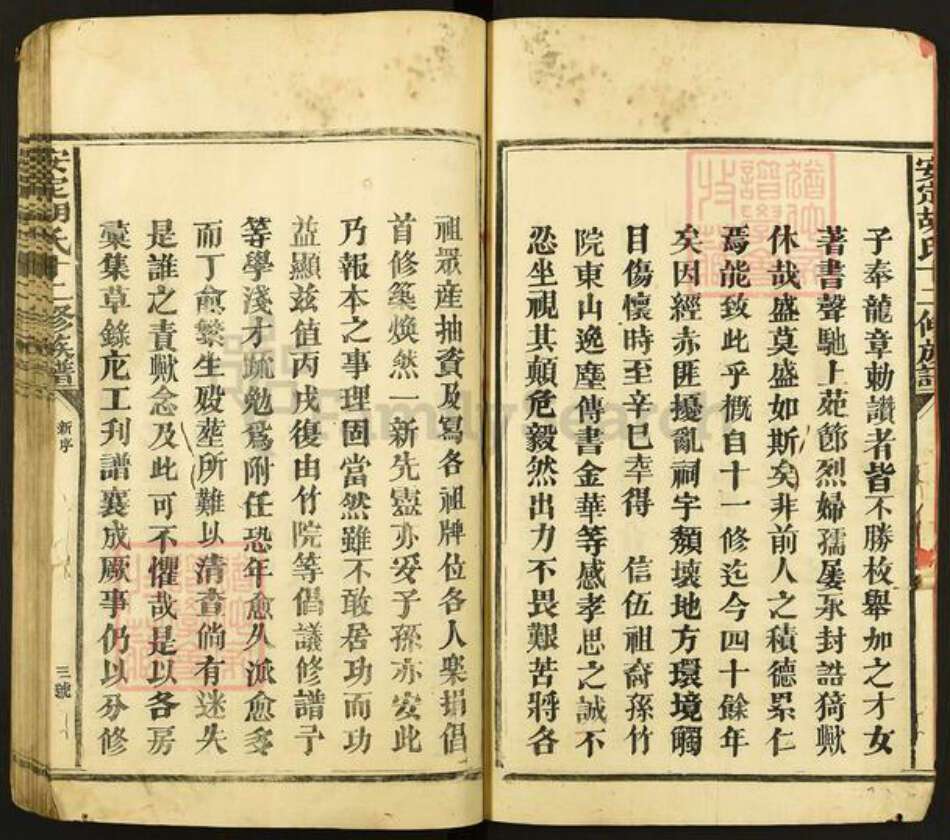 安定胡氏十二修族譜
子奉龍章勅讚者皆不勝枚舉加之才女
著書聲馳上苑節烈婦孺屢承封誥猗歟
休哉盛莫盛如斯矣非前人之積德累仁
焉能致此乎慨自十一修迄今四十餘年
矣因經赤匪擾亂祠宇頽壞地方環境觸
目傷懷時至辛巳幸得 信伍祖裔孫竹
院東山逸塵傳書金華等感孝思之誠不
忍坐視其顛危毅然出力不畏艱苦將各
祖眾産抽資及寫各祖牌位各人樂捐倡
首修築煥然一新先靈亦妥子孫亦安此
乃報本之事理固當然雖不敢居功而功
益顯兹值丙戌復由竹院等倡議修譜予
等學淺才疏勉爲附任恐年愈久派愈多
而丁愈繁生殁塟所難以清查倘有迷失
是誰之責歟念及此可不懼哉是以各房
稾集草錄庀工刋譜襄成厥事仍以分修
安定胡氏十二修族譜
新序
三號
FamilySearch